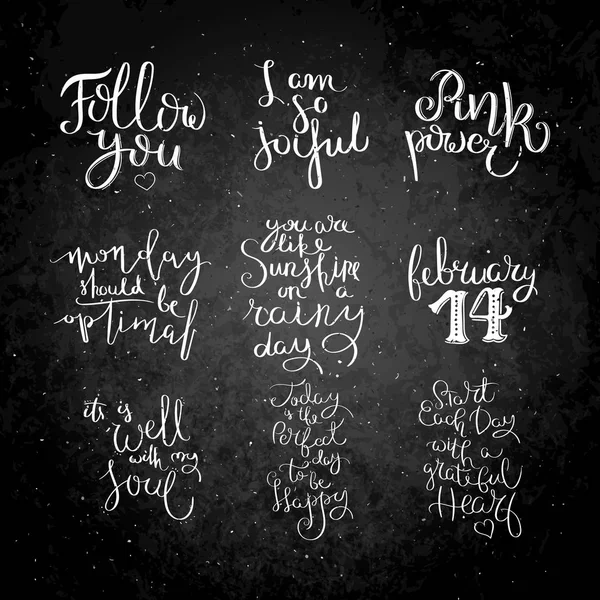 Follow
you
I am
so
joiful
Pink
power
monday
should be
optimal
you are
like
Sunshine
on a
rainy
day
february
14
it's is
Well
with my
Soul
Today
is the
Perfect
day
to be
Happy
Start
Each Day
with a
grateful
Heart